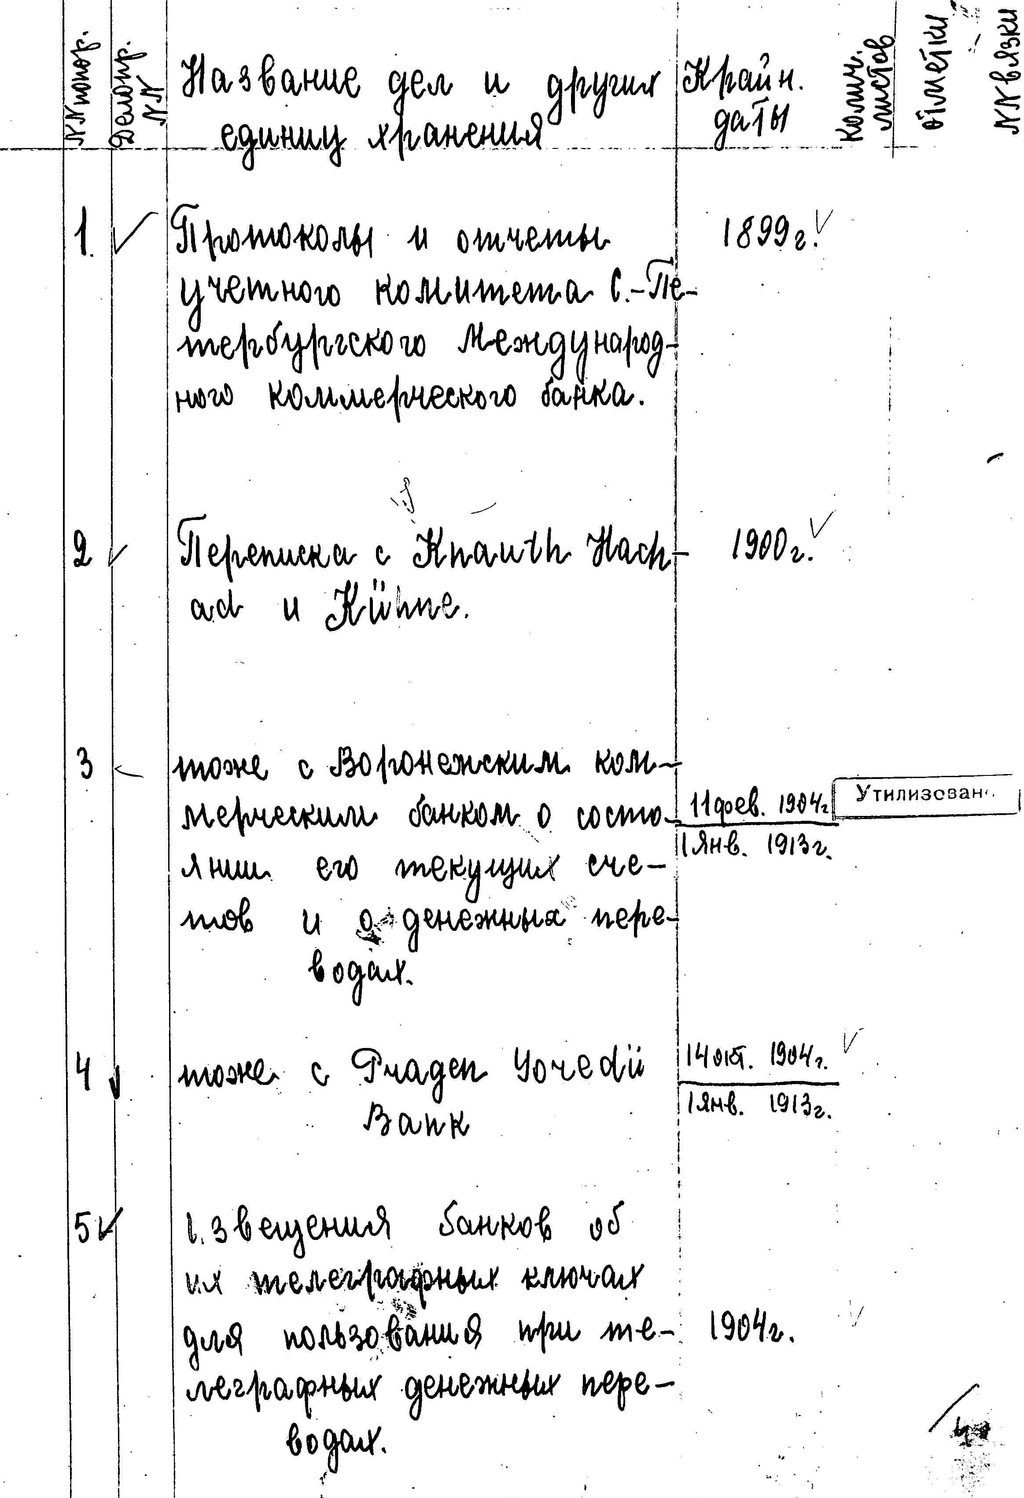 NN попор.
Делопр. NN
Название дел и других
единиц хранения
Крайн.
даты
Колич.
листов
отметки
NN вязки
1.
Протоколы и отчеты
учетного комитета С.-Пе-
тербургского Международ-
ного коммерческого банка.
1899г.
2
Переписка с Knauth Nach
ad и Kühne.
1900г.
3
тоже с Воронежским ком-
мерческим банком о состо-
янии его текущих сче-
тов и о денежных пере-
водах.
11 фев. 1904г
1 янв. 1913г.
Утилизован
4
тоже с
Bank
14 окт. 1904г.
1 янв. 1913г.
5
Извещения банков об
их телеграфных ключах
для пользования при те-
леграфных денежных пере-
водах.
1904г.